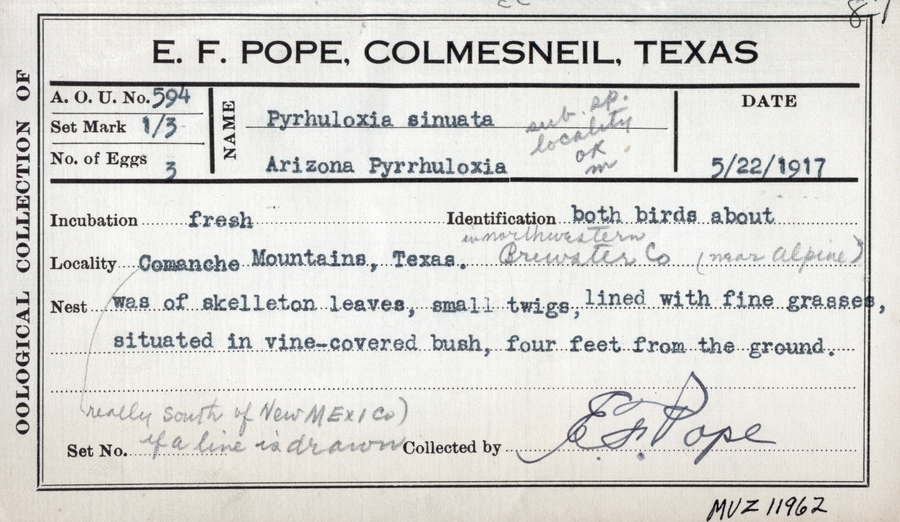 E. F. POPE, COLMESNEIL, TEXAS
OOLOGICAL COLLECTION OF
A. O. U. No. 594
Set Mark 1/3
No. of Eggs 3
NAME
Pyrhuloxia sinuata
Arizona Pyrrhuloxia
sub. sp.
locality
OK
m
DATE
5/22/1917
Incubation fresh
Identification both birds about
in northwestern
Locality Comanche Mountains, Texas. Brewster Co (near Alpine)
Nest was of skelleton leaves, small twigs, lined with fine grasses,
situated in vine-covered bush, four feet from the ground.
(really South of New MExico)
if a line is drawn
Set No.
Collected by E F Pope
MVZ 11962